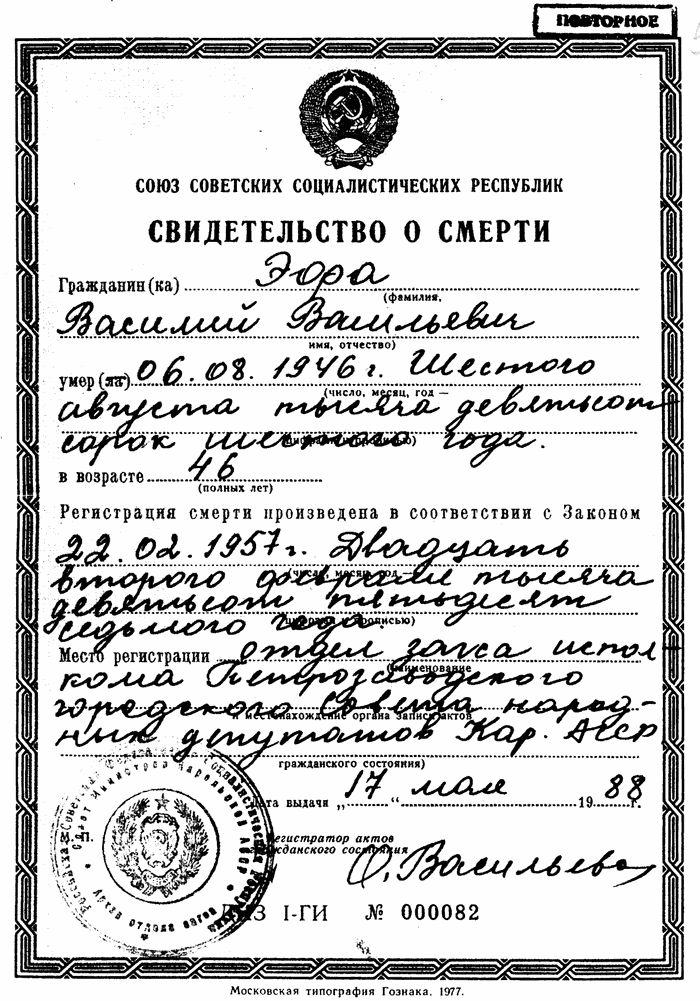 ПОВТОРНОЕ
СОЮЗ СОВЕТСКИХ СОЦИАЛИСТИЧЕСКИХ РЕСПУБЛИК
СВИДЕТЕЛЬСТВО О СМЕРТИ
Гражданин (ка) Эфра
(фамилия,
Василий Васильевич
имя, отчество)
умер (ла) 06.08.1946 г. Шестого
(число, месяц, год —
августа тысяча девятьсот
сорок шестого года.
в возрасте 46
(полных лет)
Регистрация смерти произведена в соответствии с Законом
22.02.1957 г. Двадцать
(число, месяц, год
второго февраля тысяча
девятьсот пятьдесят
седьмого года.
Место регистрации отдел загса испол-
(наименование
кома Петрозаводского
городского совета народ-
и местонахождение органа записи актов
ных депутатов Кар. АССР
гражданского состояния)
Дата выдачи „17“ мая 1988 г.
М. П.
Регистратор актов
гражданского состояния
О. Васильева
I-ГИ № 000082
Московская типография Гознака. 1977.